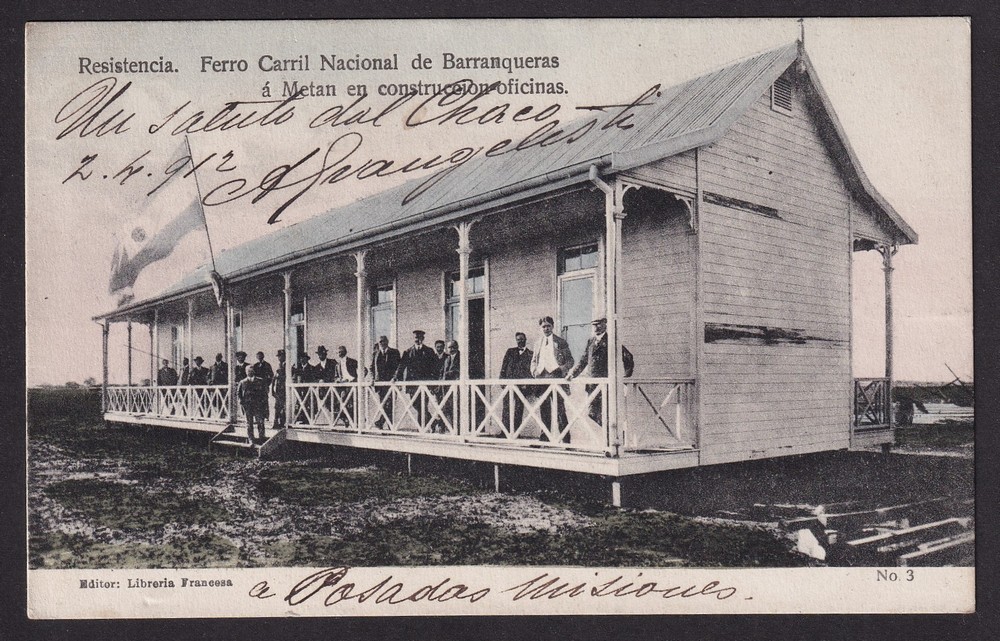 Resistencia. Ferro Carril Nacional de Barranqueras
á Metan en construccion-oficinas.
Un saluto dal Chaco
2.4.912 A Evangelisti
Editor: Libreria Francesa
No. 3
a Posadas Misiones.